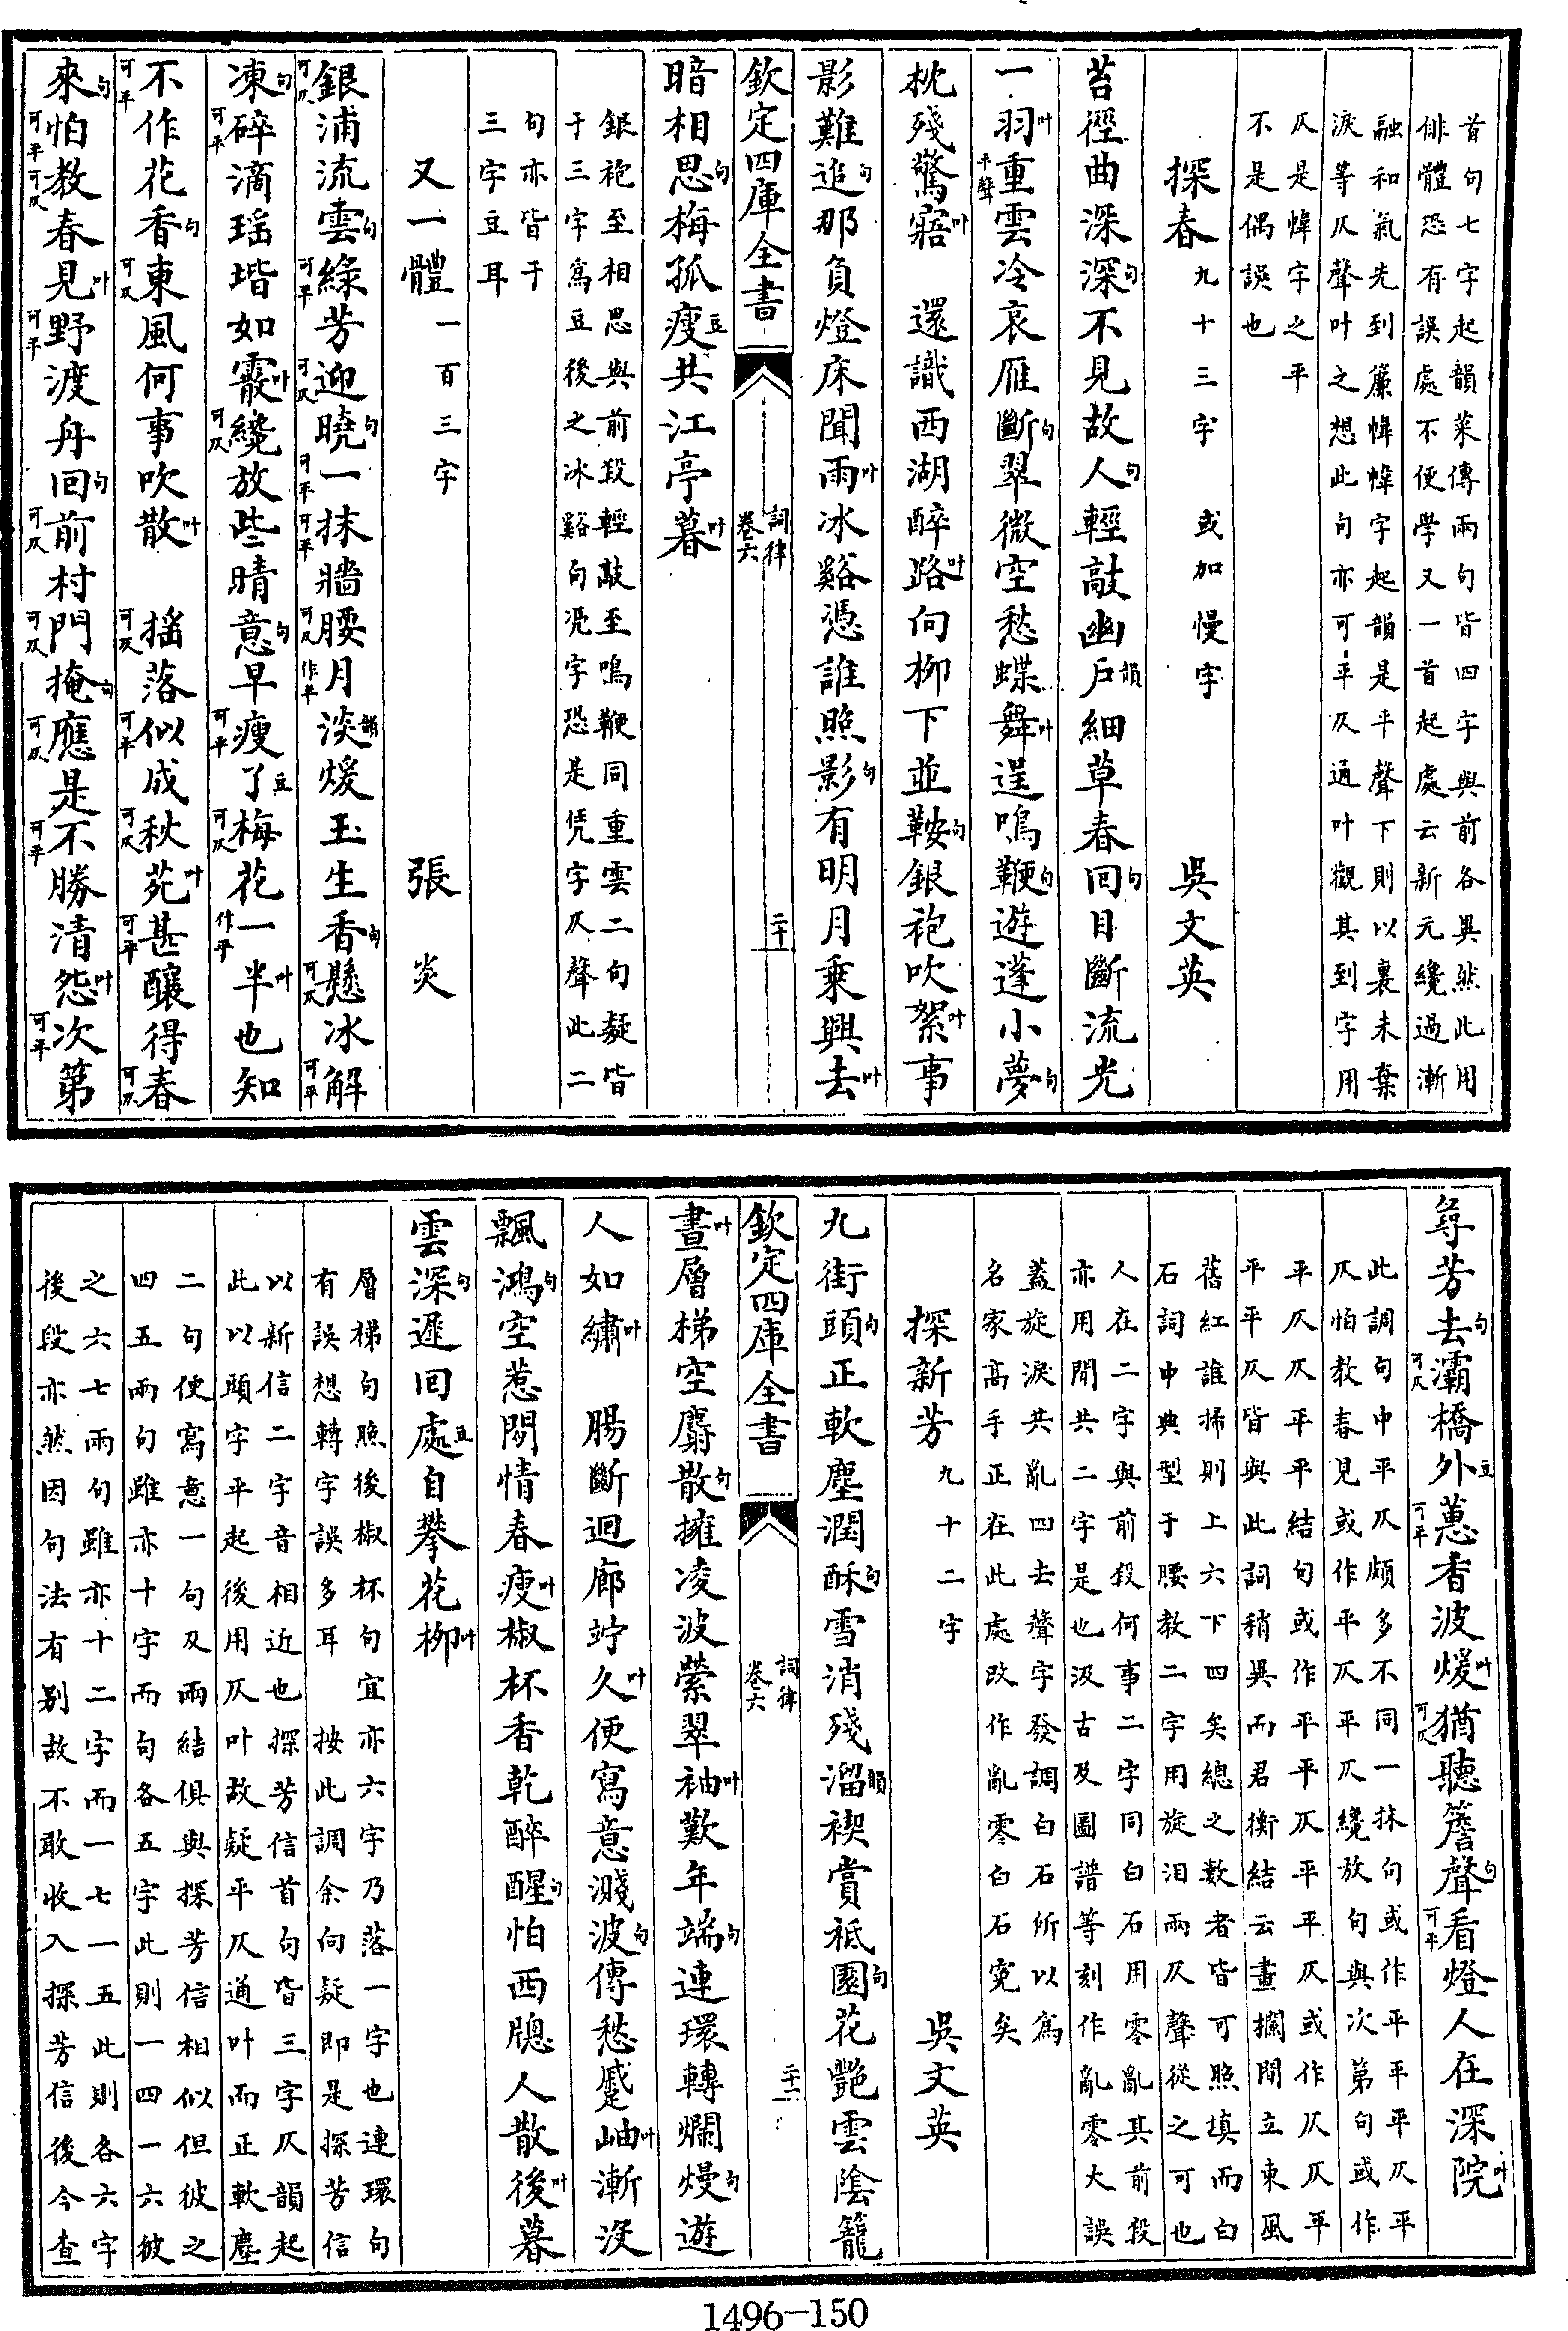 首句七字起韻葉傳兩句皆四字與前各異然此用
俳體恐有誤處不便學又一首起處云新元纔過漸
融和氣先到簾幃幃字起韻是平聲下則以裏未棄
淚等仄聲叶之想此句亦可平仄通叶觀其到字用
仄是幃字之平
不是偶誤也
探春 九十三字 或加慢字 吳文英
苔徑曲深深句不見故人句輕敲幽戶韻細草春回句目斷流光
一羽叶重平聲雲冷哀雁斷句翠微空愁蝶舞叶逞鳴鞭句遊蓬小夢句
枕殘驚寤叶 還識西湖醉路叶向柳下並鞍句銀袍吹絮叶事
影難追句那負燈床聞雨叶冰谿憑誰照影句有明月乘興去叶
欽定四庫全書 詞律 卷六 二十
暗相思句梅孤瘦豆共江亭暮叶
銀袍至相思與前段輕敲至鳴鞭同重雲二句凝皆
于三字為豆後之冰谿句憑字恐是凭字仄聲此二
句亦皆于
三字豆耳
又一體 一百三字 張炎
銀可仄浦流雲句綠可平芳迎可仄曉句一可平抹可平牆腰可仄月作平淡韻煖玉生香句懸可仄冰解可平
凍句碎可平滴瑤堦如霰叶纔可仄放些晴意句早瘦可平了豆梅可仄花一作平半叶也知
不可平作花香句東可仄風何事吹散叶 搖可仄落似可平成秋可仄苑叶甚可平釀得春可仄
來句怕可平教可仄春見叶野可平渡舟回句前可仄村門可仄掩句應可仄是不可平勝清怨叶次可平第
尋芳去句灞可仄橋外豆蕙可平香波煖叶猶可仄聽簷聲句看可平燈人在深院叶
此調句中平仄頗多不同一抹句或作平平平仄平
仄怕教春見或作平仄平仄纔放句與次第句或作
平仄仄平平結句或作平平仄平平仄或作仄仄平
平平仄皆與此詞稍異而君衡結云畫攔閒立東風
舊紅誰掃則上六下四矣總之數者皆可照填而白
石詞中典型于腰教二字用旋泪兩仄聲從之可也
人在二字與前段何事二字同白石用零亂其前段
亦用閒共二字是也汲古及圖譜等刻作亂零大誤
蓋旋淚共亂四去聲字發調白石所以為
名家高手正在此處改作亂零白石寃矣
探新芳 九十二字 吳文英
九街頭句正軟塵潤酥句雪消殘溜韻禊賞祗園句花艷雲陰籠
欽定四庫全書 詞律 卷六 二十一
晝叶層梯空麝散句擁凌波縈翠袖叶歎年端句連環轉爛熳句遊
人如繡叶 腸斷迴廊竚久叶便寫意濺波句傳愁蹙岫叶漸沒
飄鴻句空惹閒情春瘦叶椒杯香乾醉醒句怕西牕人散後叶暮
雲深句遲回處豆自攀花柳叶
層梯句照後椒杯句宜亦六字乃落一字也連環句
有誤想轉字誤多耳 按此調余向疑即是探芳信
以新信二字音相近也探芳信首句皆三字仄韻起
此以頭字平起後用仄叶故疑平仄通叶而正軟塵
二句便寫意一句及兩結俱與探芳信相似但彼之
四五兩句雖亦十字而句各五字此則一四一六彼
之六七兩句雖亦十二字而一七一五此則各六字
後段亦然因句法有别故不敢收入探芳信後今查
1496-150